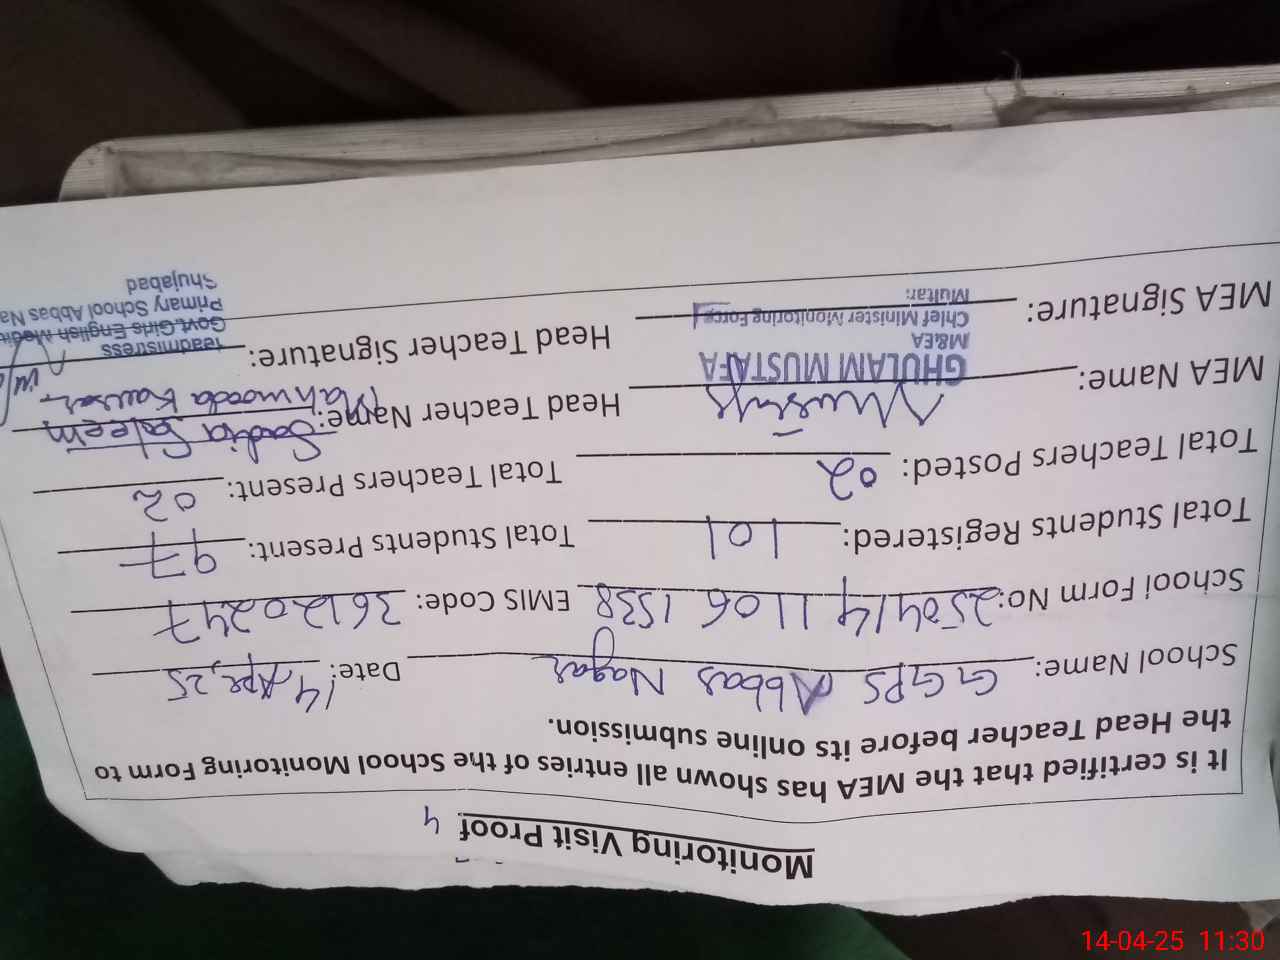 Monitoring Visit Proof 4
It is certified that the MEA has shown all entries of the School Monitoring Form to
the Head Teacher before its online submission.
School Name: GGPS Abbas Nagar Date: 14, Apr, 25
School Form No: 250414 1106 1538 EMIS Code: 36120247
Total Students Registered: 101 Total Students Present: 97
Total Teachers Posted: 02 Total Teachers Present: 02
MEA Name: Head Teacher Name: Sadia Saleem
Mahmooda Kausar
GHULAM MUSTAFA
M&EA
Chief Minister Monitoring Force
Multan.
MEA Signature: Head Teacher Signature:
Headmistress
Govt. Girls English
Primary School Abbas Na
Shujabad
14-04-25 11:30